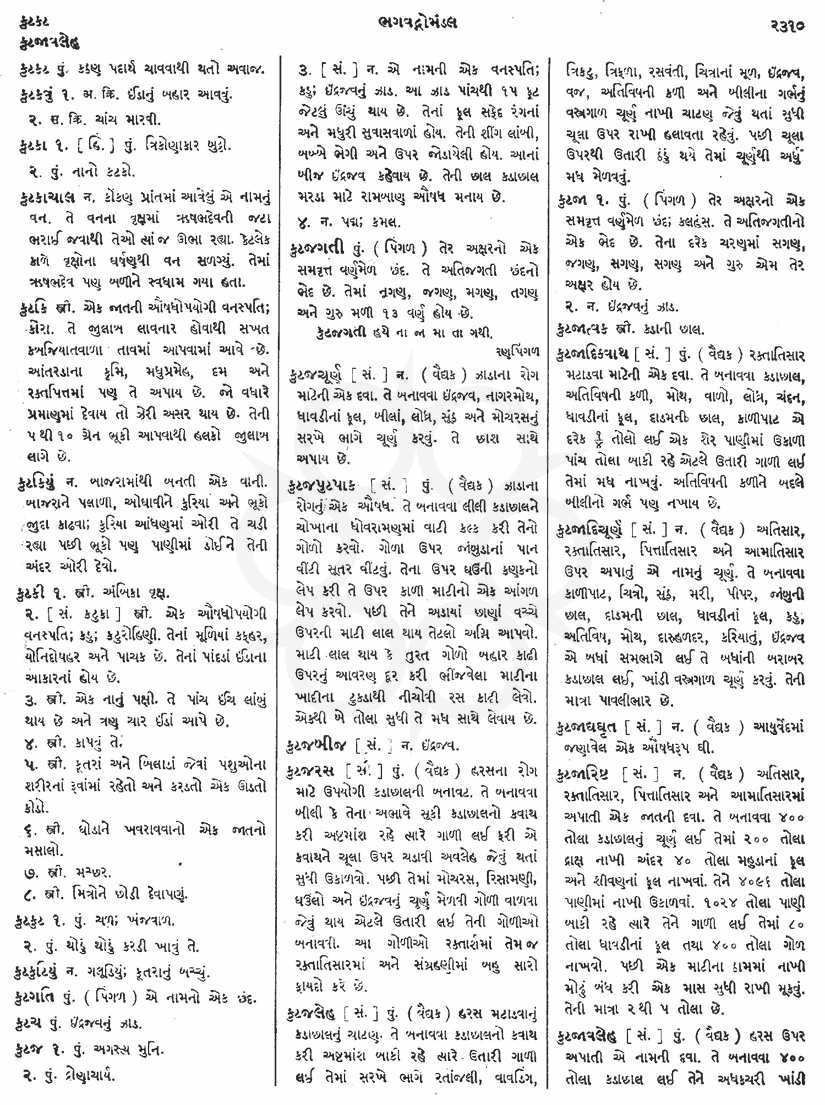 કુટકટ
ભગવદ્ગોમંડલ
૨૩૧૦
કુટજાવલેહ
કુટકટ પું. કઠણ પદાર્થ ચાવવાથી થતો અવાજ.
કુટકવું ૧. અ. ક્રિ. ઈંડાનું બહાર આવવું.
૨. સ. ક્રિ. ચાંચ મારવી.
કુટકા ૧. [ હિં. ] પું. ત્રિકોણાકાર બુટ્ટો.
૨. પું. નાનો કટકો.
કુટકાચાલ ન. કોંકણ પ્રાંતમાં આવેલું એ નામનું
વન. તે વનના વૃક્ષમાં ઋષભદેવની જટા
ભરાઈ જવાથી તેઓ ત્યાં જ ઊભા રહ્યા. કેટલેક
કાળે વૃક્ષોના ઘર્ષણથી વન સળગ્યું. તેમાં
ઋષભદેવ પણ બળીને સ્વધામ ગયા હતા.
કુટકિ સ્ત્રી. એક જાતની ઔષધોપયોગી વનસ્પતિ;
કોંરા. તે જુલાબ લાવનાર હોવાથી સખત
કબજિયાતવાળા તાવમાં આપવામાં આવે છે.
આંતરડાના કૃમિ, મધુપ્રમેહ, દમ અને
રક્તપિત્તમાં પણ તે અપાય છે. જો વધારે
પ્રમાણમાં દેવાય તો ઝેરી અસર થાય છે. તેની
૫ થી ૧૦ ગ્રેન ભૂકી આપવાથી હલકો જુલાબ
લાગે છે.
કુટકિયું ન. બાજરામાંથી બનતી એક વાની.
બાજરાને પલાળી, ઓઘાવીને કુરિયા અને ભૂકો
જુદા કાઢવા; કુરિયા આંધણમાં ઓરી તે ચડી
રહ્યા પછી ભૂકો પણ પાણીમાં ડોઈને તેની
અંદર ઓરી દેવો.
કુટકી ૧. સ્ત્રી. અંબિકા વૃક્ષ.
૨. [ સં. કટુકા ] સ્ત્રી. એક ઔષધોપયોગી
વનસ્પતિ; કડુ; કટુરોહિણી. તેનાં મૂળિયાં કફહર,
યોનિદોષહર અને પાચક છે. તેનાં પાંદડાં ઈંડાના
આકારનાં હોય છે.
૩. સ્ત્રી. એક નાનું પક્ષી. તે પાંચ ઈંચ લાંબું
થાય છે અને ત્રણ ચાર ઈંડાં આપે છે.
૪. સ્ત્રી. કાપવું તે.
૫. સ્ત્રી. કૂતરાં અને બિલાડાં જેવાં પશુઓના
શરીરનાં રૂંવાંમાં રહેતો અને કરડતો એક ઊડતો
કીડો.
૬. સ્ત્રી. ઘોડાને ખવરાવવાનો એક જાતનો
મસાલો.
૭. સ્ત્રી. મચ્છર.
૮. સ્ત્રી. મિત્રોને છોડી દેવાપણું.
કુટકુટ ૧. પું. ચળ; ખંજવાળ.
૨. પું. થોડું થોડું કરડી ખાવું તે.
કુટકુટિયું ન. ગલુડિયું; કૂતરાનું બચ્ચું.
કુટગતિ પું. ( પિંગળ ) એ નામનો એક છંદ.
કુટચ પું. ઇંદ્રજવનું ઝાડ.
કુટજ ૧. પું. અગસ્ત્ય મુનિ.
૨. પું. દ્રોણાચાર્ય.
૩. [ સં. ] ન. એ નામની એક વનસ્પતિ;
કડુ; ઇંદ્રજવનું ઝાડ. આ ઝાડ પાંચથી ૧૫ ફૂટ
જેટલું ઊંચું થાય છે. તેનાં ફૂલ સફેદ રંગનાં
અને મધુરી સુવાસવાળાં હોય. તેની શીંગ લાંબી,
બબ્બે ભેગી અને ઉપર જોડાયેલી હોય. આનાં
બીજ ઇંદ્રજવ કહેવાય છે. તેની છાલ કડાછાલ
મરડા માટે રામબાણ ઔષધ મનાય છે.
૪. ન. પદ્મ; કમલ.
કુટજગતી પું. ( પિંગળ ) તેર અક્ષરનો એક
સમવૃત્ત વર્ણમેળ છંદ. તે અતિજગતી છંદનો
ભેદ છે. તેમાં નગણ, જગણ, મગણ, તગણ
અને ગુરુ મળી ૧૩ વર્ણ હોય છે.
કુટજગતી હયે ના જ મા તા ગથી.
રણપિંગળ
કુટજચૂર્ણ [ સં. ] ન. ( વૈદ્યક ) ઝાડાના રોગ
માટેની એક દવા. તે બનાવવા ઇંદ્રજવ, નાગરમોથ,
ધાવડીનાં ફૂલ, બીલાં, લોધ્ર, સુંઠ અને મોચરસનું
સરખે ભાગે ચૂર્ણ કરવું. તે છાશ સાથે
અપાય છે.
કુટજપુટપાક [ સં. ] પું. ( વૈદ્યક ) ઝાડાના
રોગનું એક ઔષધ. તે બનાવવા લીલી કડાછાલને
ચોખાના ધોવરામણમાં વાટી કલ્ક કરી તેનો
ગોળો કરવો. ગોળા ઉપર જાંબુડાનાં પાન
વીંટી સૂતર વીંટવું. તેના ઉપર ઘઉંની કણકનો
લેપ કરી તે ઉપર કાળા માટીનો એક આંગળ
લેપ કરવો. પછી તેને અડાયાં છાણાં વચ્ચે
ઉપરની માટી લાલ થાય તેટલો અગ્નિ આપવો.
માટી લાલ થાય કે તુરત ગોળો બહાર કાઢી
ઉપરનું આવરણ દૂર કરી ભીંજવેલા માટીના
ખાદીના ટુકડાથી નીચોવી રસ કાઢી લેવો.
એકથી બે તોલા સુધી તે મધ સાથે લેવાય છે.
કુટજબીજ [ સં. ] ન. ઇંદ્રજવ.
કુટજરસ [ સં. ] પું. ( વૈદ્યક ) હરસના રોગ
માટે ઉપયોગી કડાછાલની બનાવટ. તે બનાવવા
બીલી કે તેના અભાવે સૂકી કડાછાલનો કવાથ
કરી અષ્ટમાંશ રહે ત્યારે ગાળી લઈ ફરી એ
કવાથને ચૂલા ઉપર ચડાવી અવલેહ જેવું થતાં
સુધી ઉકાળવો. પછી તેમાં મોચરસ, રિસામણી,
ઘઉંલો અને ઇંદ્રજવનું ચૂર્ણ મેળવી ગોળી વાળવા
જેવું થાય એટલે ઉતારી લઈ તેની ગોળીઓ
બનાવવી. આ ગોળીઓ રક્તાર્શમાં તેમ જ
રક્તાતિસારમાં અને સંગ્રહણીમાં બહુ સારો
ફાયદો કરે છે.
કુટજલેહ [ સં. ] પું. ( વૈદ્યક ) હરસ મટાડવાનું
કડાછાલનું ચાટણ. તે બનાવવા કડાછાલનો કવાથ
કરી અષ્ટમાંશ બાકી રહે ત્યારે ઉતારી ગાળી
લઈ તેમાં સરખે ભાગે રતાંજલી, વાવડિંગ,
ત્રિકટુ, ત્રિફળા, રસવંતી, ચિત્રાનાં મૂળ, ઇંદ્રજવ,
વજ, અતિવિષની કળી અને બીલીના ગર્ભનું
વસ્ત્રગાળ ચૂર્ણ નાખી ચાટણ જેવું થતાં સુધી
ચૂલા ઉપર રાખી હલાવતા રહેવું. પછી ચૂલા
ઉપરથી ઉતારી ઠંડું થયે તેમાં ચૂર્ણથી અર્ધું
મધ મેળવવું.
કુટજા ૧. પું. ( પિંગળ ) તેર અક્ષરનો એક
સમવૃત્ત વર્ણમેળ છંદ; કલહંસ. તે અતિજગતીનો
એક ભેદ છે. તેના દરેક ચરણમાં સગણ,
જગણ, સગણ, સગણ અને ગુરુ એમ તેર
અક્ષર હોય છે.
૨. ન. ઇંદ્રજવનું ઝાડ.
કુટજાત્વક સ્ત્રી. કડાની છાલ.
કુટજાદિકવાથ [ સં. ] પું. ( વૈદ્યક ) રક્તાતિસાર
મટાડવા માટેની એક દવા. તે બનાવવા કડાછાલ,
અતિવિષની કળી, મોથ, વાળો, લોધ્ર, ચંદન,
ધાવડીનાં ફૂલ, દાડમની છાલ, કાળીપાટ એ
દરેક તોલો લઈ એક શેર પાણીમાં ઉકાળી
પાંચ તોલા બાકી રહે એટલે ઉતારી ગાળી લઈ
તેમાં મધ નાખવું. અતિવિષની કળીને બદલે
બીલીનો ગર્ભ પણ નખાય છે.
કુટજાદિચૂર્ણ [ સં. ] ન. ( વૈદ્યક ) અતિસાર,
રક્તાતિસાર, પિત્તાતિસાર અને આમાતિસાર
ઉપર અપાતું એ નામનું ચૂર્ણ. તે બનાવવા
કાળીપાટ, ચિત્રો, સુંઠ, મરી, પીપર, જાંબુની
છાલ, દાડમની છાલ, ધાવડીનાં ફૂલ, કડુ,
અતિવિષ, મોથ, દારુહળદર, કરિયાતું, ઇંદ્રજવ
એ બધાં સમભાગે લઈ તે બધાંની બરાબર
કડાછાલ લઈ, ખાંડી વસ્ત્રગાળ ચૂર્ણ કરવું. તેની
માત્રા પાવલીભાર છે.
કુટજાદ્યઘૃત [ સં. ] ન. ( વૈદ્યક ) આયુર્વેદમાં
જણાવેલ એક ઔષધરૂપ ઘી.
કુટજારિષ્ટ [ સં. ] ન. ( વૈદ્યક ) અતિસાર,
રક્તાતિસાર, પિત્તાતિસાર અને આમાતિસારમાં
અપાતી એક જાતની દવા. તે બનાવવા ૪૦૦
તોલા કડાછાલનું ચૂર્ણ લઈ તેમાં ૨૦૦ તોલા
દ્રાક્ષ નાખી અંદર ૪૦ તોલા મહુડાનાં ફૂલ
અને શીવણનાં ફૂલ નાખવાં. તેને ૪૦૯૬ તોલા
પાણીમાં નાખી ઉકાળવાં. ૧૦૨૪ તોલા પાણી
બાકી રહે ત્યારે તેને ગાળી લઈ તેમાં ૮૦
તોલા ધાવડીનાં ફૂલ તથા ૪૦૦ તોલા ગોળ
નાખવો. પછી એક માટીના ઠામમાં નાખી
મોઢું બંધ કરી એક માસ સુધી રાખી મૂકવું.
તેની માત્રા ૨ થી ૫ તોલા છે.
કુટજાવલેહ [ સં. ] પું. ( વૈદ્યક ) હરસ ઉપર
અપાતી એ નામની દવા. તે બનાવવા ૪૦૦
તોલા કડાછાલ લઈ તેને અધકચરી ખાંડી